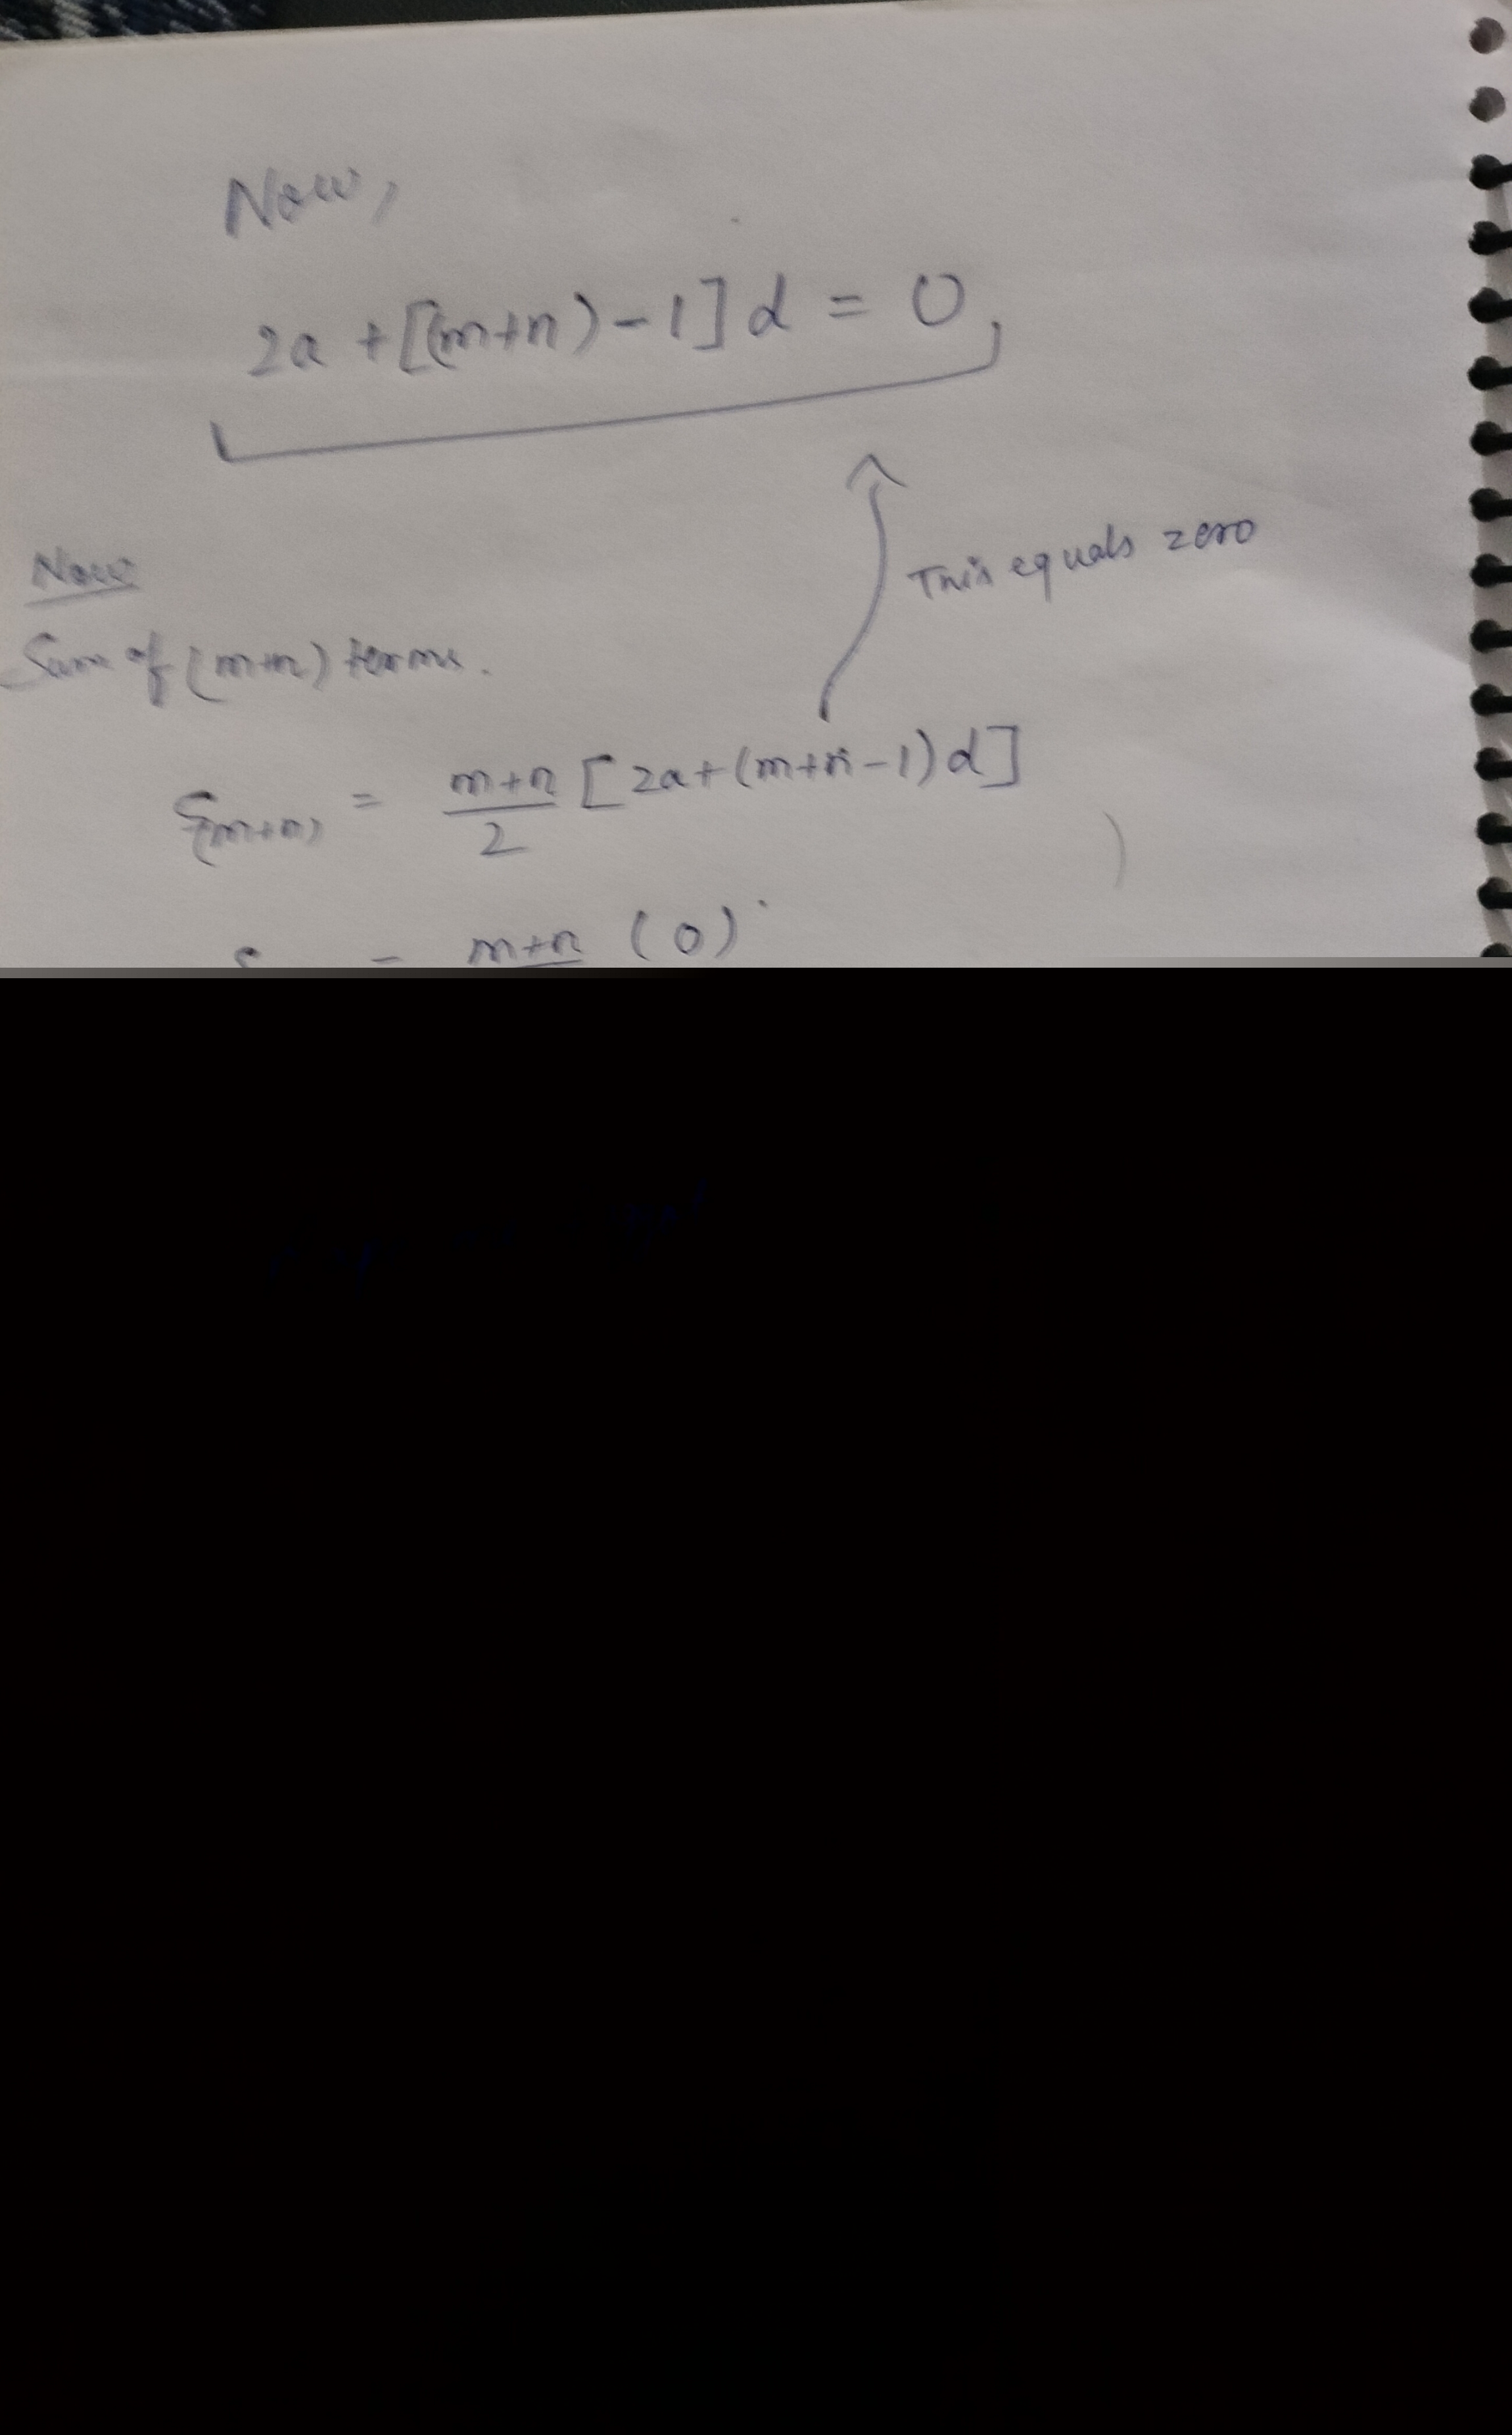 Now,
2a + [(m+n) - 1] d = 0,
This equals zero
Now
Sum of (m+n) terms.
S(m+n) = m+n/2 [2a + (m+n-1) d]
= m+n (0)